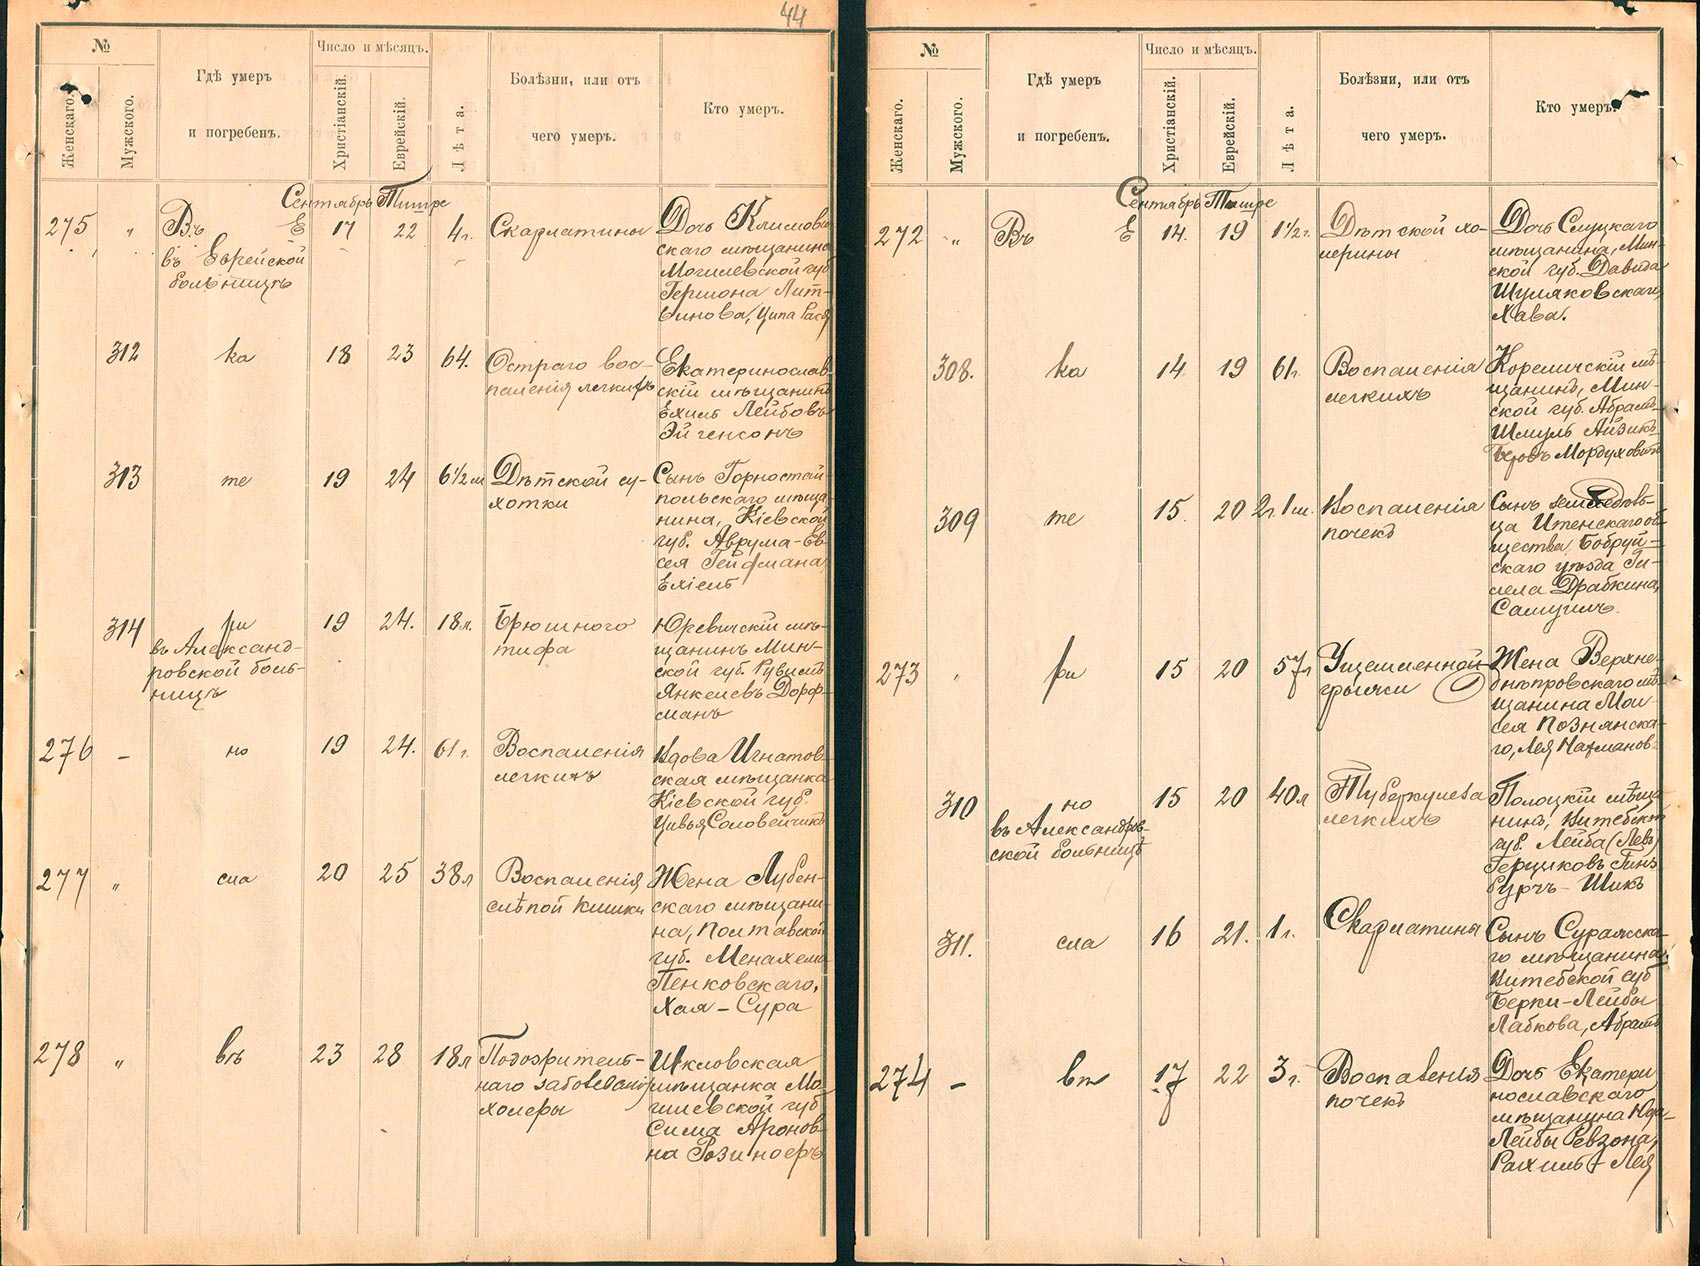 44
№
Женскаго.
Мужского.
Гдѣ умеръ
и погребенъ.
Число и мѣсяцъ.
Христіанскій.
Еврейскій.
Лѣта.
Болѣзни, или отъ
чего умеръ.
Кто умеръ.
Сентябрь Тишре
275 " Въ Е 17 22 4 г. Скарлатины
въ Еврейской
больницѣ
Дочь Климови-
скаго мѣщанина
Могилевской губ
Гершона Лит-
винова, Ципа
312 ка 18 23 64. Остраго вос-
паленія легкихъ
Екатеринослав
скій мѣщанинъ
Ехиль Лейбовъ
Эйгенсонъ
313 те 19 24 6 1/2 м Дѣтской су-
хотки
Сынъ Горностай-
польскаго мѣща-
нина, Кіевской
губ. Аврума-Ев-
сея Гейфмана,
Ехіель
314 ри 19 24. 18 л. Брюшного
тифа
въ Александ-
ровской боль-
ницѣ
Юревичскій мѣ-
щанинъ Мин-
ской губ. Рувимъ
Янкелевъ Дорф-
манъ
276 — но 19 24. 61 г. Воспаленія
легкихъ
Вдова Игнатов-
ская мѣщанка
Кіевской губ.
Цивья Соловейчикъ
277 " сла 20 25 38 л Воспаленія
слѣпой кишки
Жена Лубен-
скаго мѣщани-
на, Полтавской
губ. Менахема
Пенковскаго,
Хая-Сура
278 " въ 23 28 18 л Подозрительнаго-
наго заболеванія
холеры
Шкловская
мѣщанка Мо-
гилевской губ
Сима Аронов-
на Розиноеръ
№
Женскаго.
Мужского.
Гдѣ умеръ
и погребенъ.
Число и мѣсяцъ.
Христіанскій.
Еврейскій.
Лѣта.
Болѣзни, или отъ
чего умеръ.
Кто умеръ.
Сентябрь Тишре
272 " Въ Е 14. 19 1 1/2 г. Дѣтской хо-
лерины
Дочь Слуцкаго
мѣщанина, Мин-
ской губ. Давида
Шуляковскаго,
Хава.
308. ка 14 19 61 г. Воспаленія
легкихъ
Кореличскій мѣ-
щанинъ, Мин-
ской губ. Абрамъ-
Шмуль Айзикъ
Беровъ Мордуховичъ
309 те 15. 20 2 г. 1 м. Воспаленія
почекъ
Сынъ земледѣль-
ца
щества, Бобруй-
скаго уѣзда Ги-
лела Драбкина,
Самуилъ.
273 " ри 15 20 57 л Ущемленной
грыжи
Жена Верхне-
днѣпровскаго мѣ-
щанина Мои-
сея Познанска-
го, Лея Нахманов.
310 но 15 20 40 л Туберкулеза
легкихъ
въ Александров-
ской больницѣ
Полоцкій мѣща-
нинъ, Витебской
губ. Лейба (Левъ)
Герциковъ Гинз-
бургъ-Шикъ
311. сла 16 21. 1 г. Скарлатины
Сынъ Суражска-
го мѣщанина,
Витебской губ
Берки-Лейбы
Лабкова, Абрамъ
274 — въ 17 22 3 г. Воспаленія
почекъ
Дочь Екатери
нославскаго
мѣщанина Юды-
Лейбы Ревзона,
Рахиль-Лея